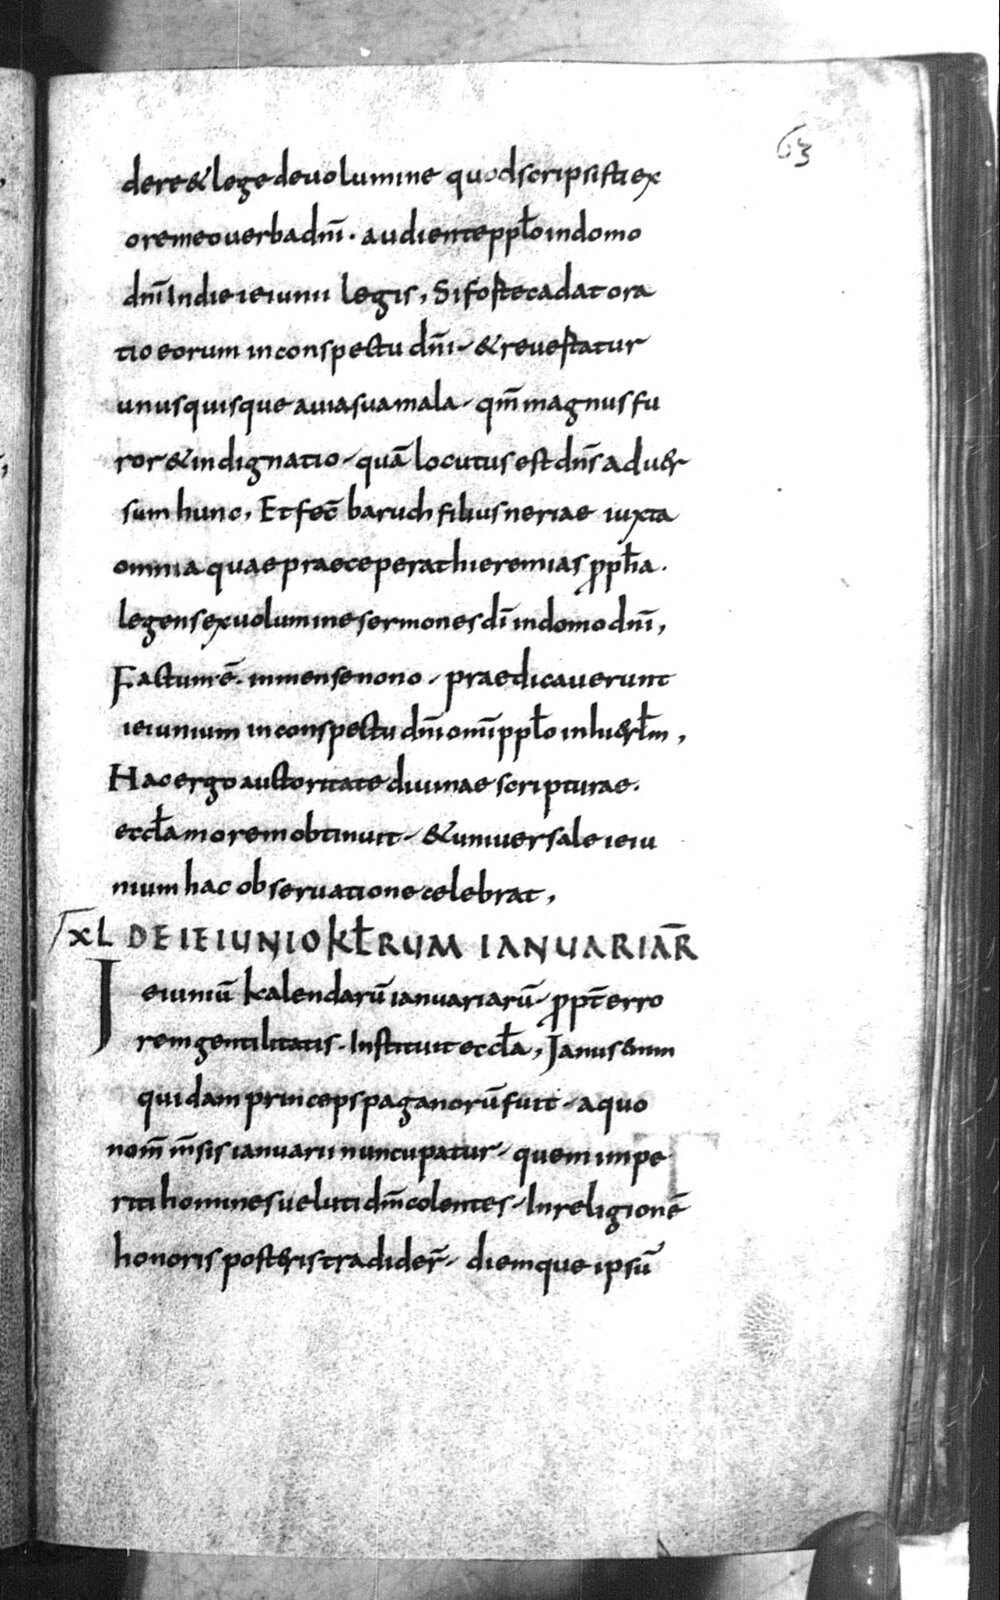 63
dere & lege de uolumine quod scripsisti ex
ore meo uerba dn̄i · audiente pplo in domo
dn̄i In die ieiunii legis, Si forte cadat ora
tio eorum in conspectu dn̄i · & reuertatur
unusquisque a uia sua mala · qm̄ magnus fu
ror & indignatio · quā locutus est dn̄s aduer
sum hunc, Et fec̄ baruch filius neriae iuxta
omnia quae praeceperat hieremias ppħa ·
legens ex uolumine sermones dī in domo dn̄i,
Factum ē · in mense nono · praedicauerunt
ieiunium in conspectu dn̄i omī ppło in hierłm,
Hac ergo auctoritate diuinae scripturae ·
eccła morem obtinuit · & uniuersale ieiu
nium hac obseruatione celebrat,
XL DE IEIUNIO KŁRUM IANUARIAR̄
Ieiuniū kalendarū ianuariarū · ppt̄ erro
rem gentilitatis · Instituit eccła, Janus enim
quidam princeps paganorū fuit · a quo
nom̄ m̄sis ianuarii nuncupatur · quem impe
riti homines ueluti dm̄ colentes · In religionē
honoris posteris tradider̄ · diemque ipsū